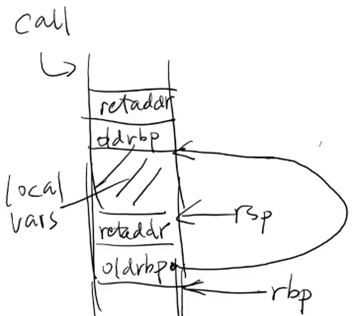 call
retaddr
oldrbp
local
vars
rsp
retaddr
oldrbp
rbp